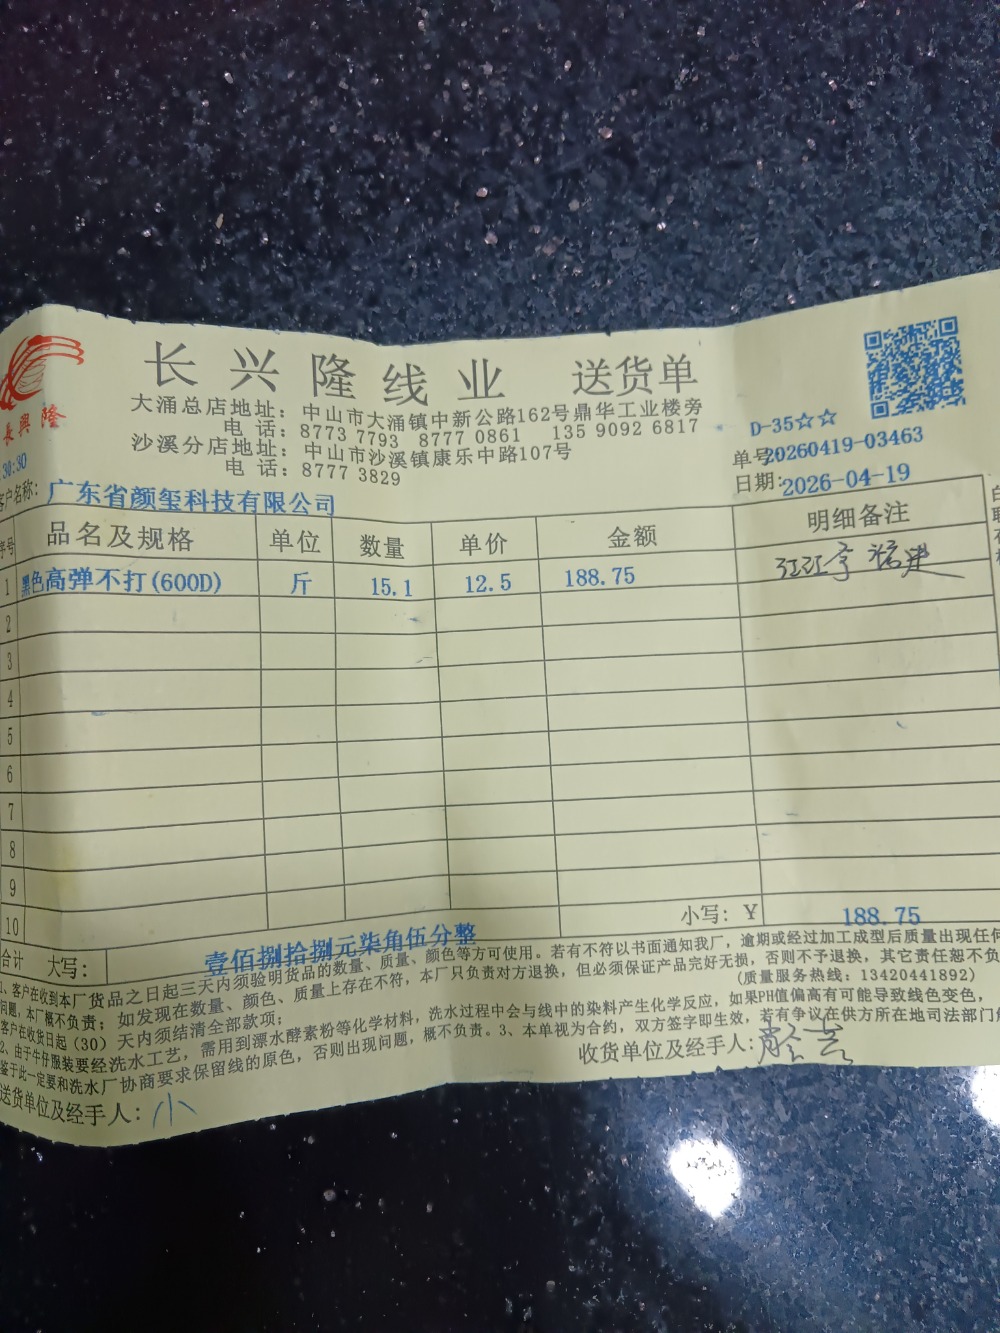 長興隆
长兴隆线业 送货单
大涌总店地址：中山市大涌镇中新公路162号鼎华工业楼旁
电 话：8773 7793 8777 0861 135 9092 6817
沙溪分店地址：中山市沙溪镇康乐中路107号
电 话：8777 3829
D-35☆☆
单号20260419-03463
日期:2026-04-19
30:30
客户名称：广东省颜玺科技有限公司
序号 品名及规格 单位 数量 单价 金额 明细备注
1 黑色高弹不打(600D) 斤 15.1 12.5 188.75
2
3
4
5
6
7
8
9
10
小写：￥ 188.75
合计 大写： 壹佰捌拾捌元柒角伍分整
1、客户在收到本厂货品之日起三天内须验明货品的数量、质量、颜色等方可使用。若有不符以书面通知我厂，逾期或经过加工成型后质量出现任何
问题，本厂概不负责；如发现在数量、颜色、质量上存在不符，本厂只负责对方退换，但必须保证产品完好无损，否则不予退换，其它责任恕不负
客户在收货日起（30）天内须结清全部款项；
（质量服务热线：13420441892）
2、由于牛仔服装要经洗水工艺，需用到漂水酵素粉等化学材料，洗水过程中会与线中的染料产生化学反应，如果PH值偏高有可能导致线色变色，
鉴于此一定要和洗水厂协商要求保留线的原色，否则出现问题，概不负责。3、本单视为合约，双方签字即生效，若有争议在供方所在地司法部门
送货单位及经手人：小
收货单位及经手人：